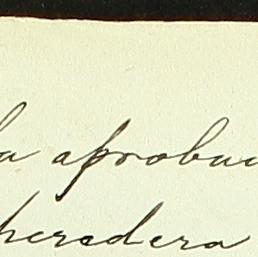 la aprobac
heredera